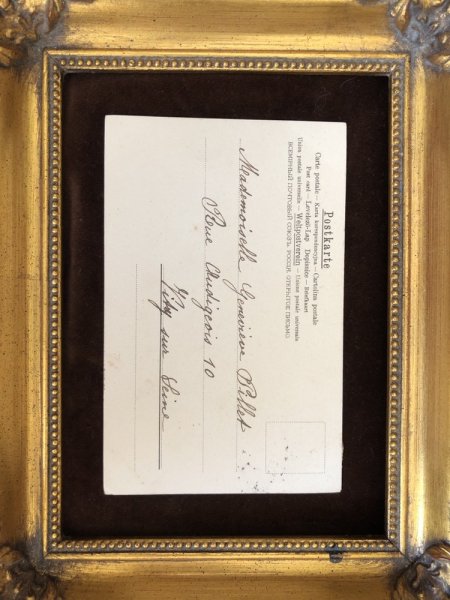 Postkarte
Carte postale. – Karta korespondencyjna – Cartolina postale
Post card – Levelező-Lap Dopisnice – Briefkaart
Union postale universelle – Weltpostverein – Unione postale universale
ВСЕМІРНЫЙ ПОЧТОВЫЙ СОЮЗЪ. РОССІЯ. ОТКРЫТОЕ ПИСЬМО.
Meademoiselle Geneviève Pillet
Rue Audigeois 10
Vitry sur Seine